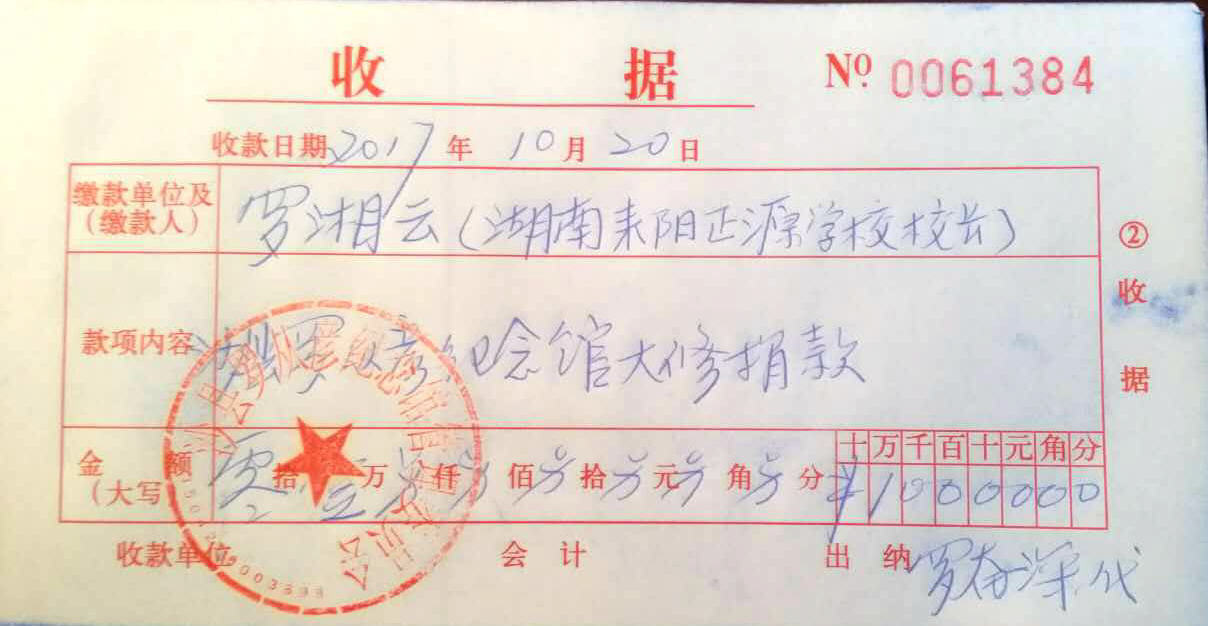 收 据 № 0061384
收款日期 2017 年 10 月 20 日
缴款单位及(缴款人) 罗湘云(湖南耒阳正源学校校长)
款项内容 纪念馆大修捐款
十万千百十元角分
金 额(大写) 拾 万 仟 佰 拾 元 角 分 ¥1000000
收款单位 会 计 出 纳 罗奋深代
② 收 据